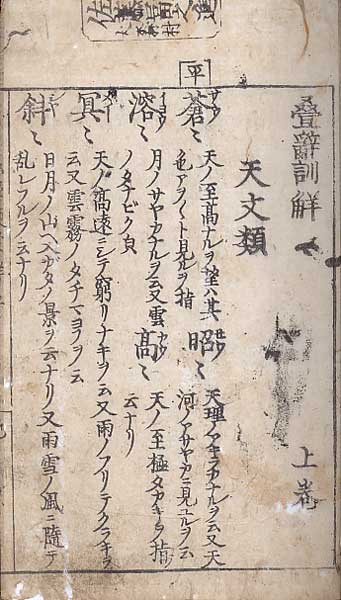 疊辭訓解　上巻
天文類
平
蒼〻
天ノ至高ナルヲ望ハ其
色アヲ〱ト見ルヲ指
昭〻
天理ノアキラカナルヲ云又天
河ノアザヤカニ見ユルヲ云
溶〻
月ノサヤカナルヲ云又雲
ノタナビク皃
高〻
天ノ至極タカキヲ指
云ナリ
冥〻
天ノ高遠ニシテ窮リナキヲ云又雨ノフリテクラキヲ
云又雲霧ノタチマヨフヲ云
斜〻
日月ノ山ヘ入カタノ景ヲ云ナリ又雨雪ノ風ニ随テ
乱レフルヲ云ナリ